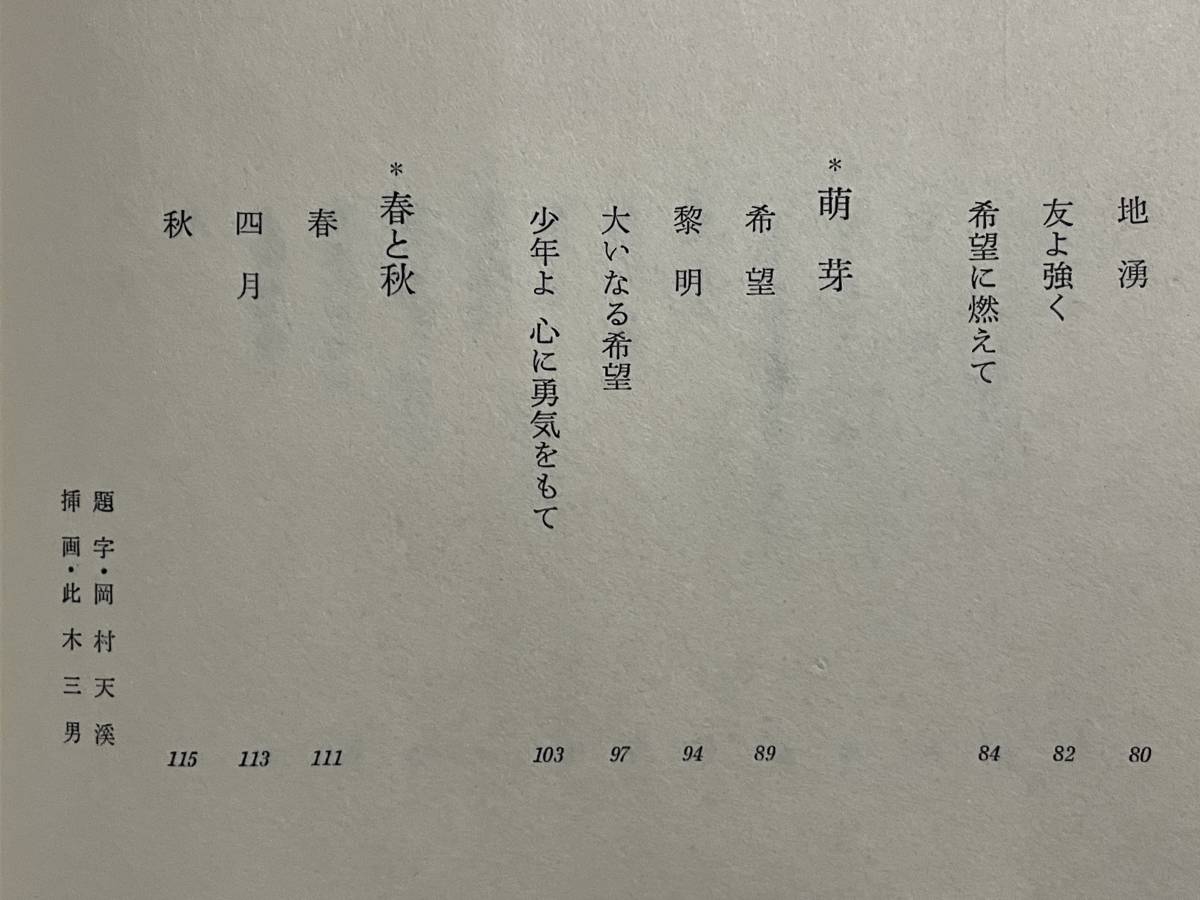 地湧 80
友よ強く 82
希望に燃えて 84
*萌芽
希望 89
黎明 94
大いなる希望 97
少年よ 心に勇気をもて 103
*春と秋
春 111
四月 113
秋 115
題字・岡村天溪
挿画・此木三男